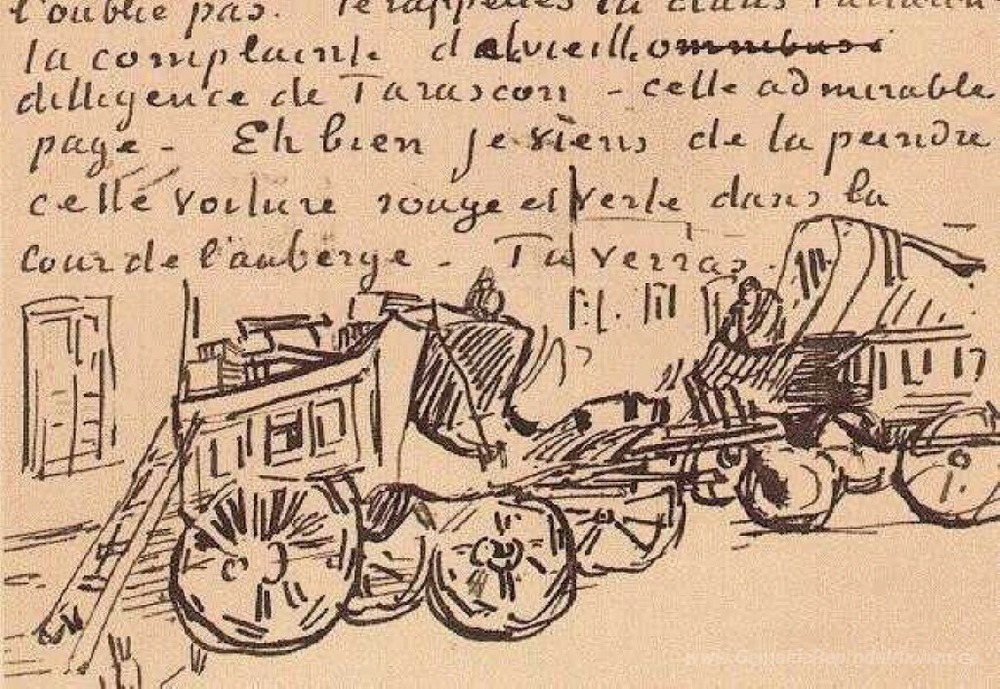 l'oublie pas. Te rappelles tu dans Tartarin
la complainte de la vieille omnibus
dilligence de Tarascon - cette admirable
page - Eh bien je viens de la peindre
cette voiture rouge et verte dans la
cour de l'auberge - Tu verras.